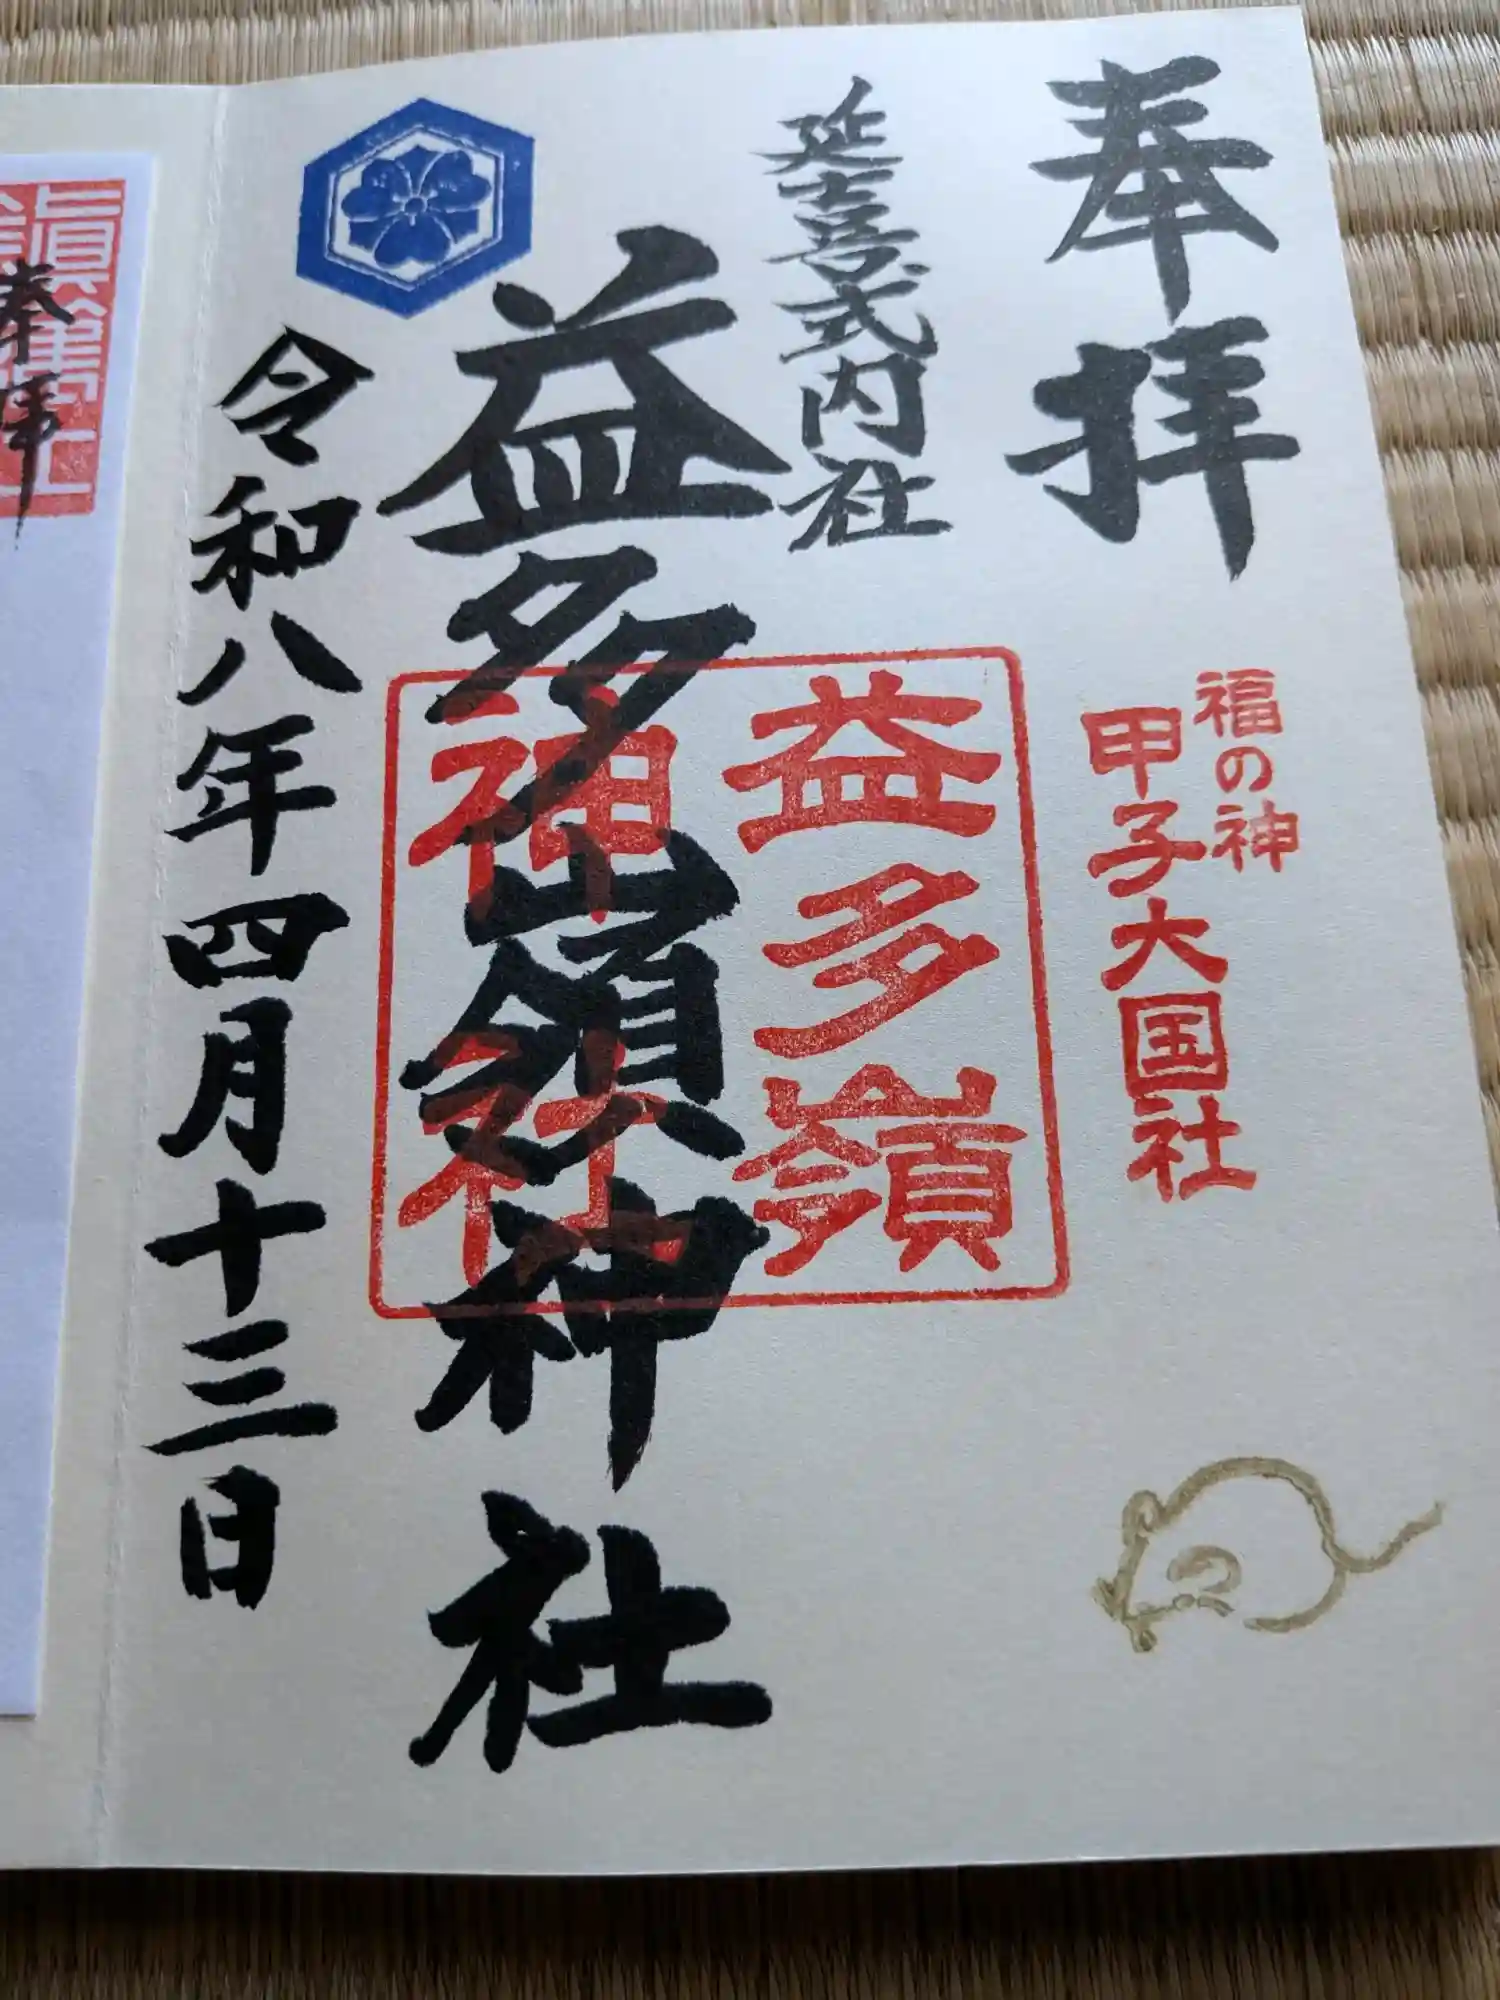 奉拝
延喜式内社
福の神
甲子大国社
益多嶺神社
益多嶺
神社
令和八年四月十三日
奉拝